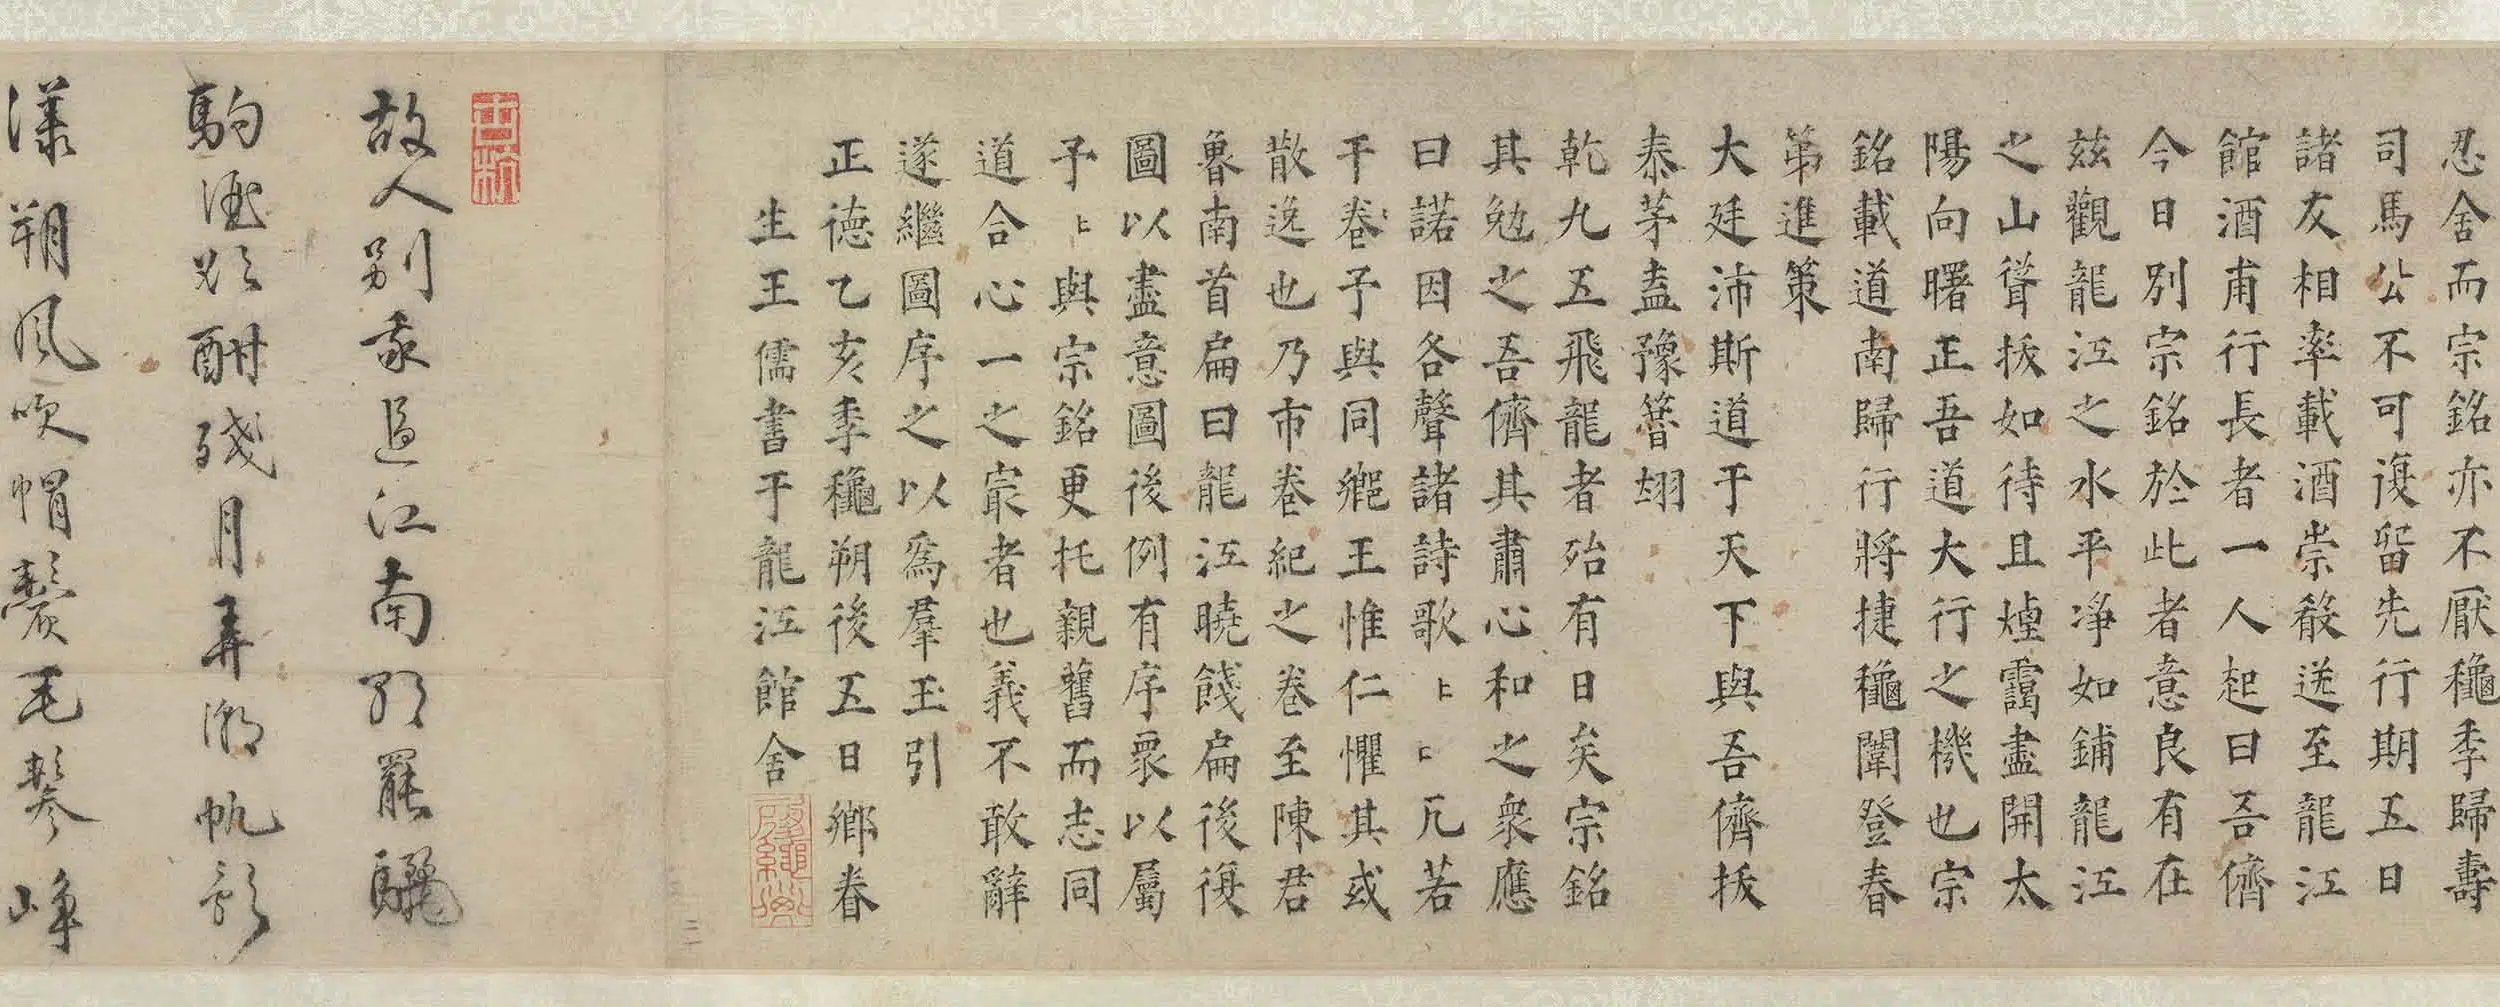 忍舍而宗銘亦不厭龝季歸壽
司馬公不可復留先行期五日
諸友相率載酒崇殽送至龍江
館酒甫行長者一人起曰吾儕
今日別宗銘於此者意良有在
茲觀龍江之水平淨如鋪龍江
之山聳拔如待且煙靄盡開太
陽向曙正吾道大行之機也宗
銘載道南歸行將捷龝闈登春
第進策
大廷沛斯道于天下與吾儕拔
泰茅盍豫簪翃
乾九五飛龍者殆有日矣宗銘
其勉之吾儕其肅心和之衆應
曰諾因各聲諸詩歌〻〻凡若
干卷予與同鄉王惟仁懼其或
散逸也乃市卷紀之卷至陳君
魯南首扁曰龍江曉餞扁後復
圖以盡意圖後例有序衆以屬
予〻與宗銘更托親舊而志同
道合心一之㝡者也義不敢辭
遂繼圖序之以為羣玉引
正德乙亥季龝朔後五日鄉眷
生王儒書于龍江館舍
故人別我過江南歌罷驪
駒酒欲酣殘月弄潮帆影
漾朔風吹帽鬢毛鬖峰